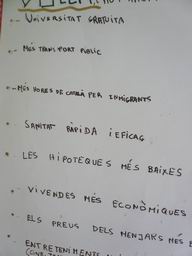 VOLEM
- UNIVERSITAT GRATUITA
- MÉS TRANSPORT PÚBLIC
- MÉS HORES DE CATALÀ PER INMIGRANTS
- SANITAT RÀPIDA I EFICAÇ
- LES HIPOTEQUES MÉS BAIXES
- VIVENDES MÉS ECONÒMIQUES
- ELS PREUS DELS MENJARS MÉS
- ENTRETENIMENTS